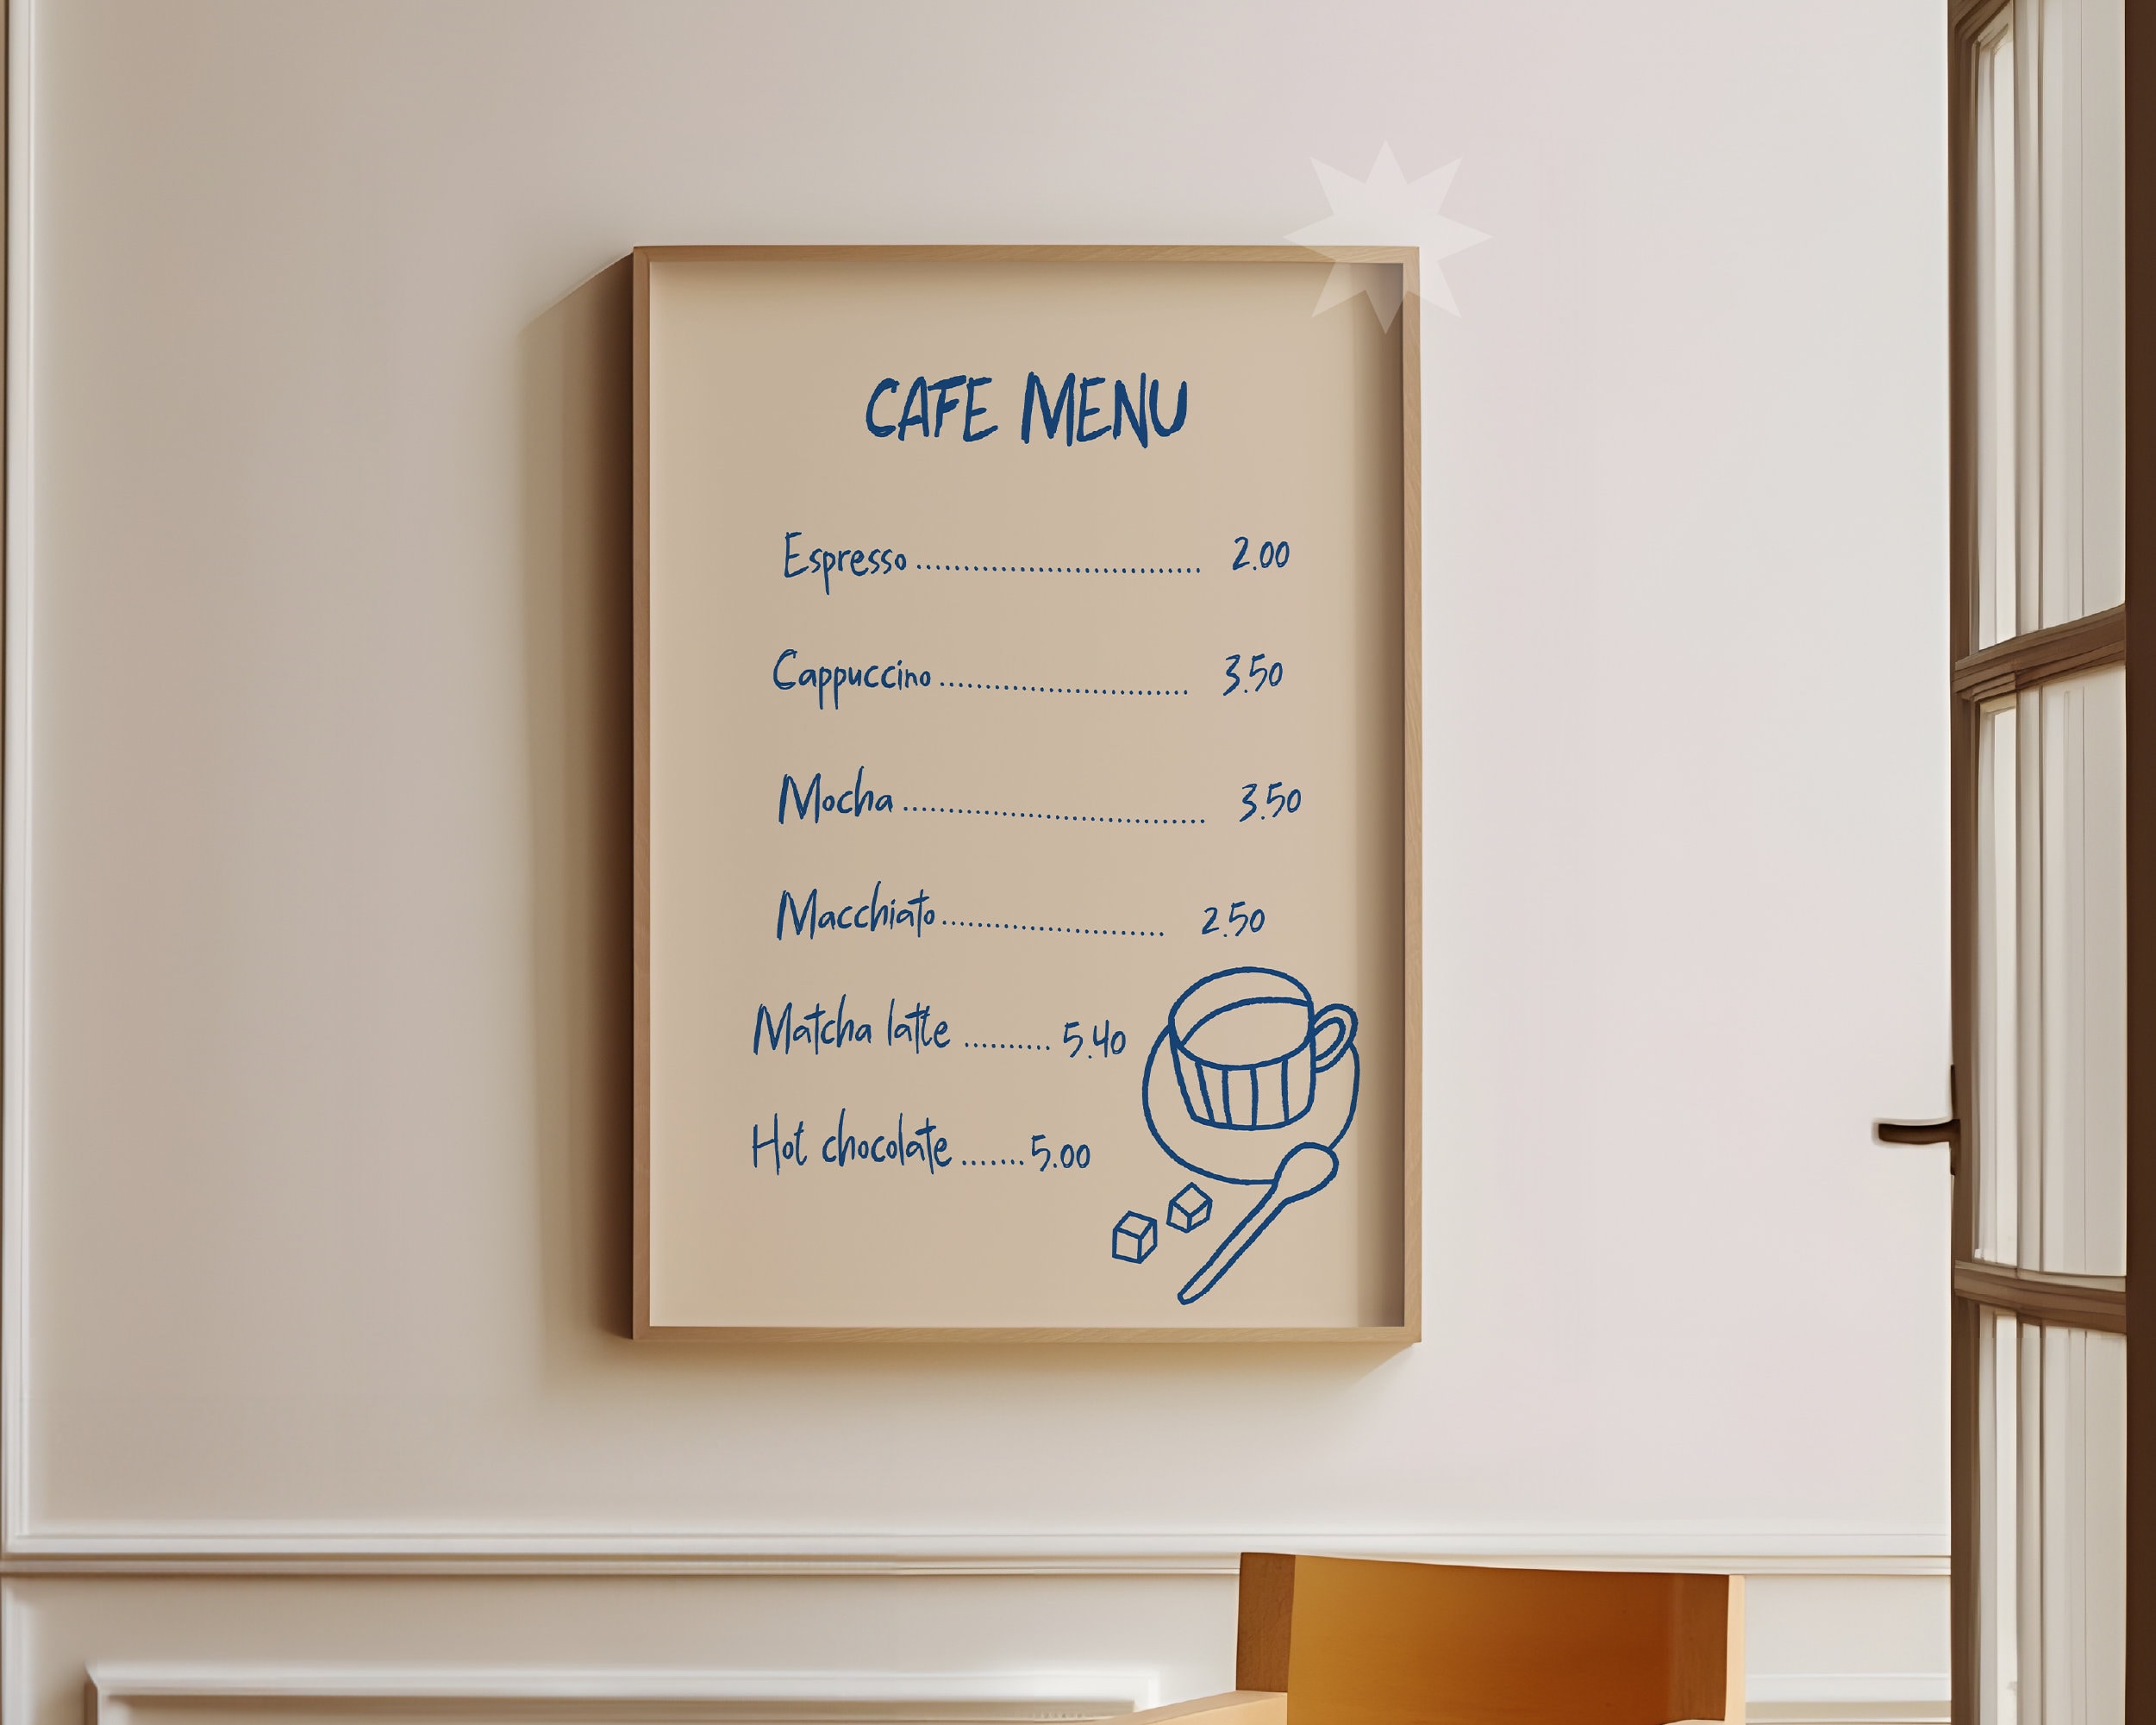 CAFE MENU
Espresso.............................. 2.00
Cappuccino........................... 3.50
Mocha................................ 3.50
Macchiato........................ 2.50
Matcha latte .......... 5.40
Hot chocolate.......5.00